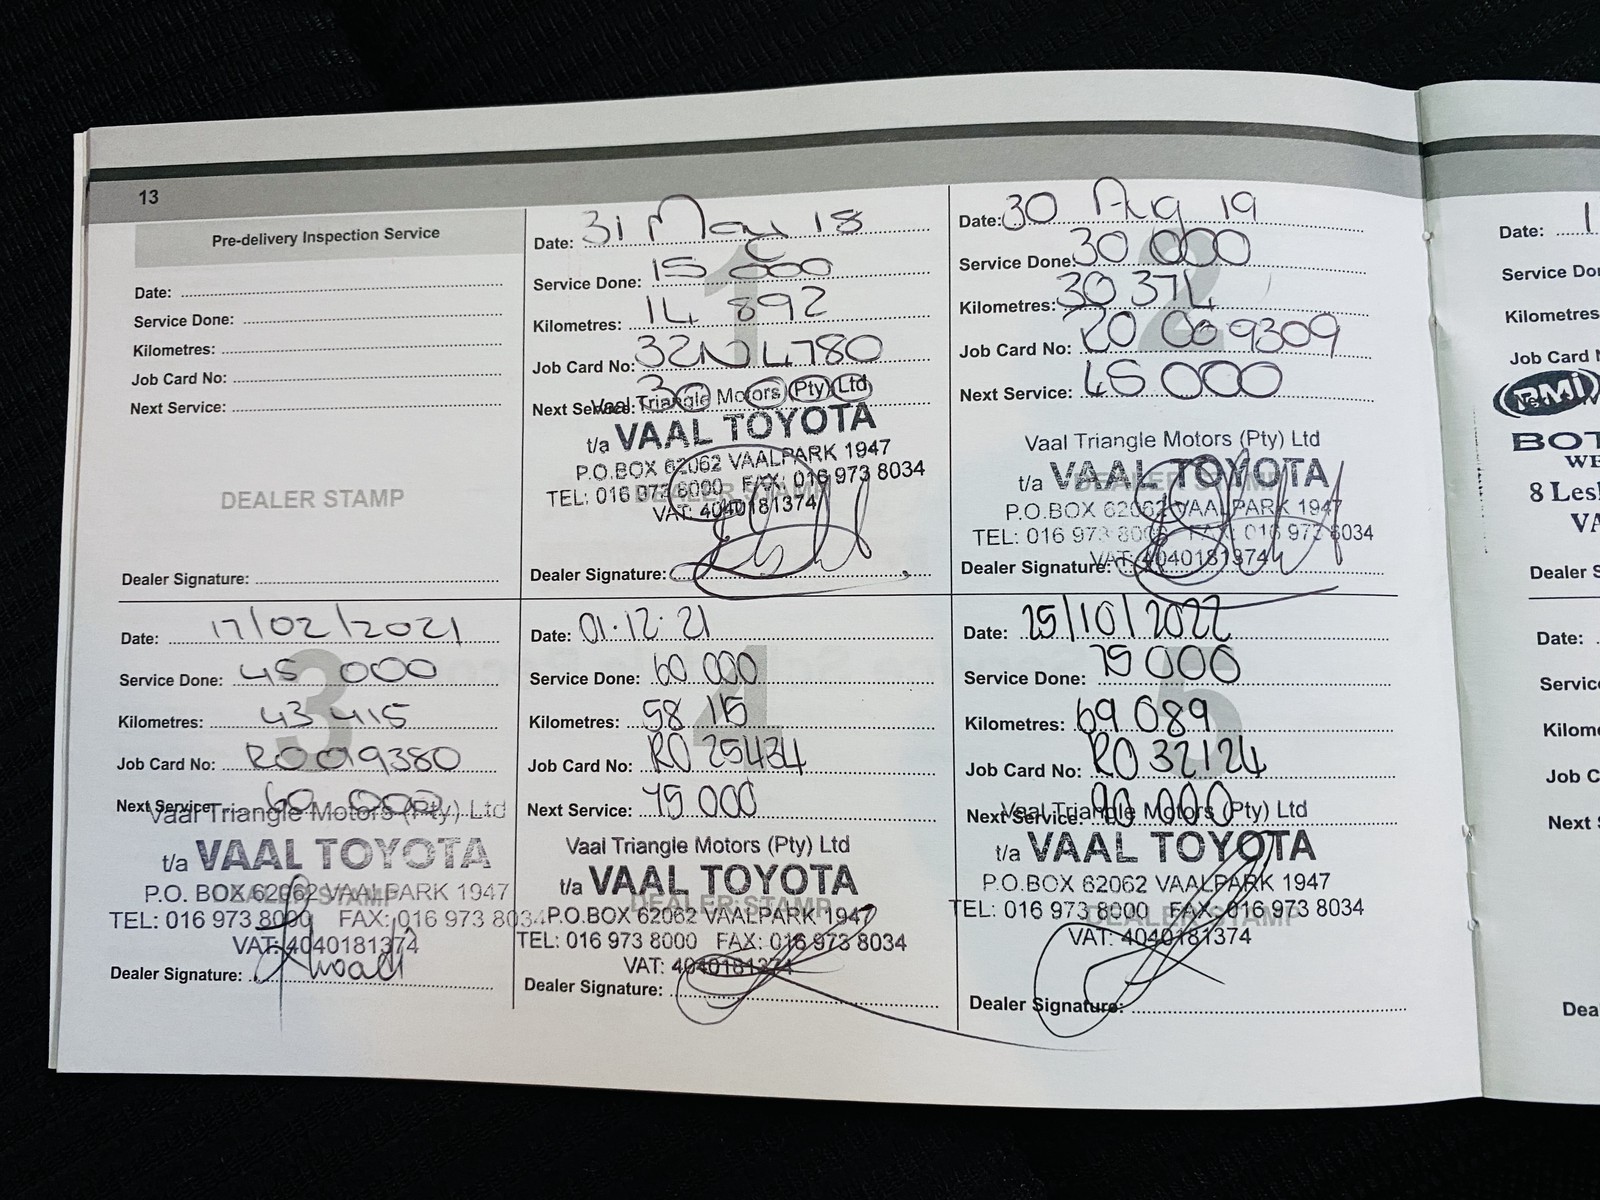 13
Pre-delivery Inspection Service
Date:
Service Done:
Kilometres:
Job Card No:
Next Service:
DEALER STAMP
Dealer Signature:
Date: 31 May 18
Service Done: 15 000
Kilometres: 14 892
Job Card No: 32N4780
Next Service: 30 000
Vaal Triangle Motors (Pty) Ltd
t/a VAAL TOYOTA
P.O.BOX 62062 VAALPARK 1947
TEL: 016 973 8000 FAX: 016 973 8034
VAT: 4040181374
DEALER STAMP
Dealer Signature:
1
Date: 30 Aug 19
Service Done: 30 000
Kilometres: 30 374
Job Card No: 20 009309
Next Service: 45 000
Vaal Triangle Motors (Pty) Ltd
t/a VAAL TOYOTA
P.O.BOX 62062 VAALPARK 1947
TEL: 016 973 8000 FAX: 016 973 8034
VAT: 4040181374
DEALER STAMP
Dealer Signature:
2
Date: 17/02/2021
Service Done: 45 000
Kilometres: 43 415
Job Card No: RO019380
Next Service: 60 000
Vaal Triangle Motors (Pty) Ltd
t/a VAAL TOYOTA
P.O. BOX 62062 VAALPARK 1947
TEL: 016 973 8000 FAX: 016 973 8034
VAT: 4040181374
DEALER STAMP
Dealer Signature:
3
Date: 01.12.21
Service Done: 60 000
Kilometres: 58 115
Job Card No: RO 25434
Next Service: 75 000
Vaal Triangle Motors (Pty) Ltd
t/a VAAL TOYOTA
P.O.BOX 62062 VAALPARK 1947
TEL: 016 973 8000 FAX: 016 973 8034
VAT: 4040181374
DEALER STAMP
Dealer Signature:
4
Date: 25/10/2022
Service Done: 75 000
Kilometres: 69 089
Job Card No: RO 32124
Next Service: 90 000
Vaal Triangle Motors (Pty) Ltd
t/a VAAL TOYOTA
P.O.BOX 62062 VAALPARK 1947
TEL: 016 973 8000 FAX: 016 973 8034
VAT: 4040181374
DEALER STAMP
Dealer Signature:
5
Date:
Service
Kilometres
Job Card
RMI
BOT
8 Les
VA
Dealer S
Date:
Service
Kilom
Job C
Next
Dea